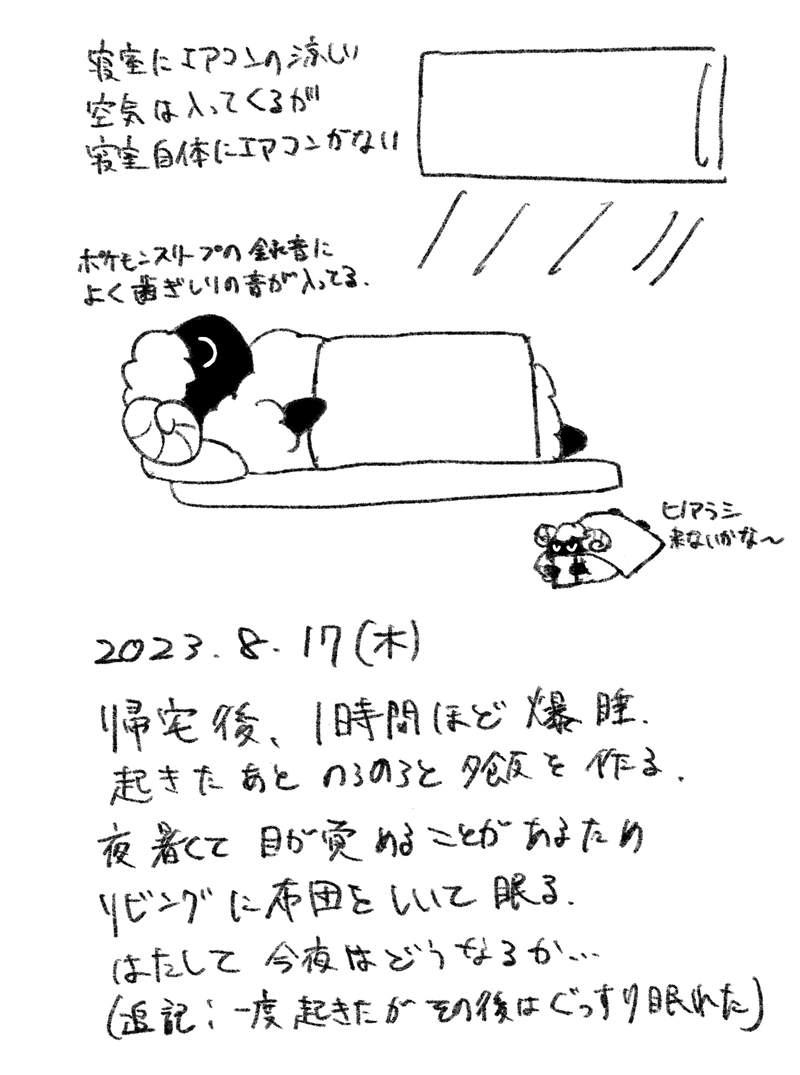 寝室にエアコンの涼しい
空気は入ってくるが
寝室自体にエアコンがない
ポケモンスリープの録音に
よく歯ぎしりの音が入ってる.
ヒノアラシ
来ないかな〜
2023.8.17(木)
帰宅後、1時間ほど爆睡.
起きたあとのろのろと夕飯を作る.
夜暑くて目が覚めることがあるため
リビングに布団をしいて眠る.
はたして今夜はどうなるか…
(追記:一度起きたがその後はぐっすり眠れた)